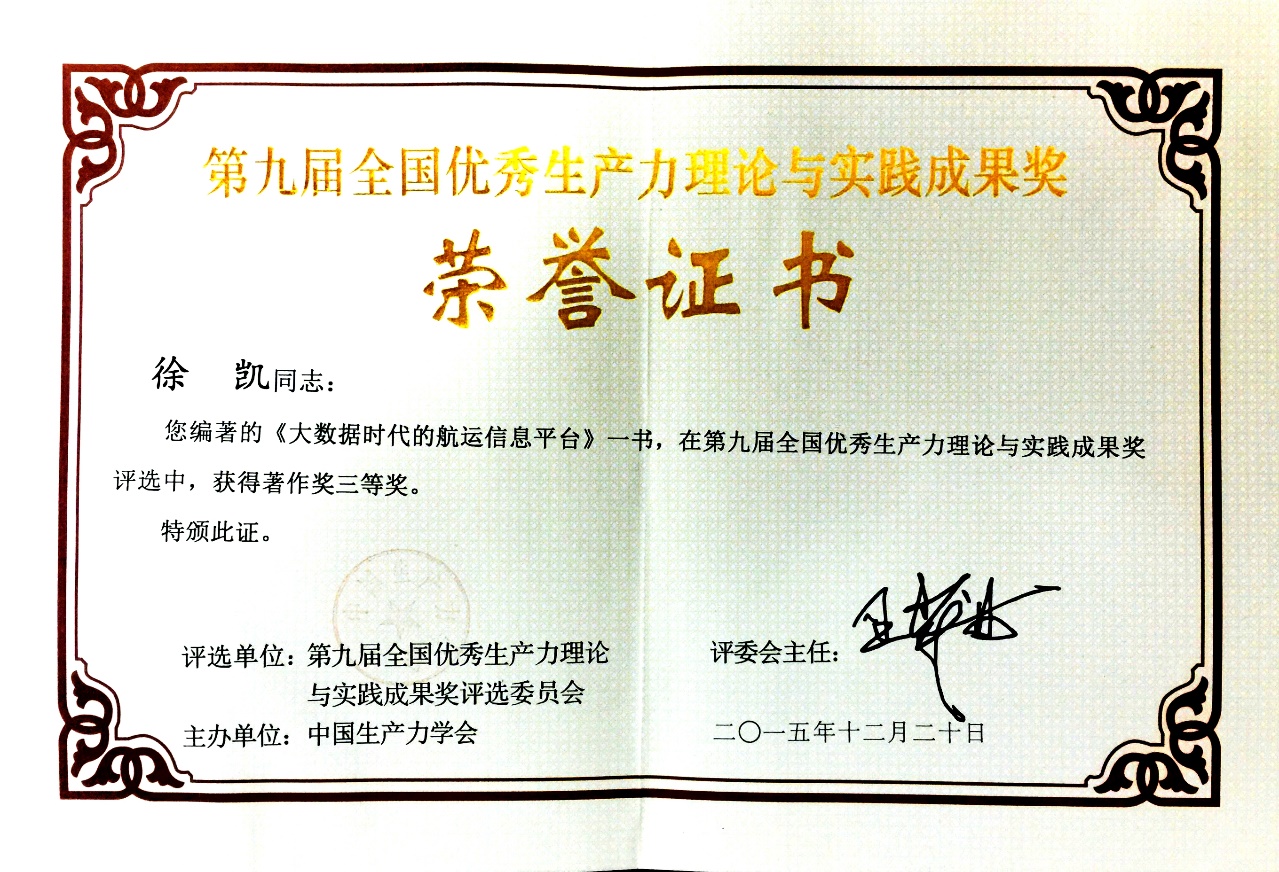 第九届全国优秀生产力理论与实践成果奖
荣誉证书
徐 凯同志：
您编著的《大数据时代的航运信息平台》一书，在第九届全国优秀生产力理论与实践成果奖
评选中，获得著作奖三等奖。
特颁此证。
评选单位：第九届全国优秀生产力理论
与实践成果奖评选委员会
主办单位：中国生产力学会
评委会主任：
二〇一五年十二月二十日